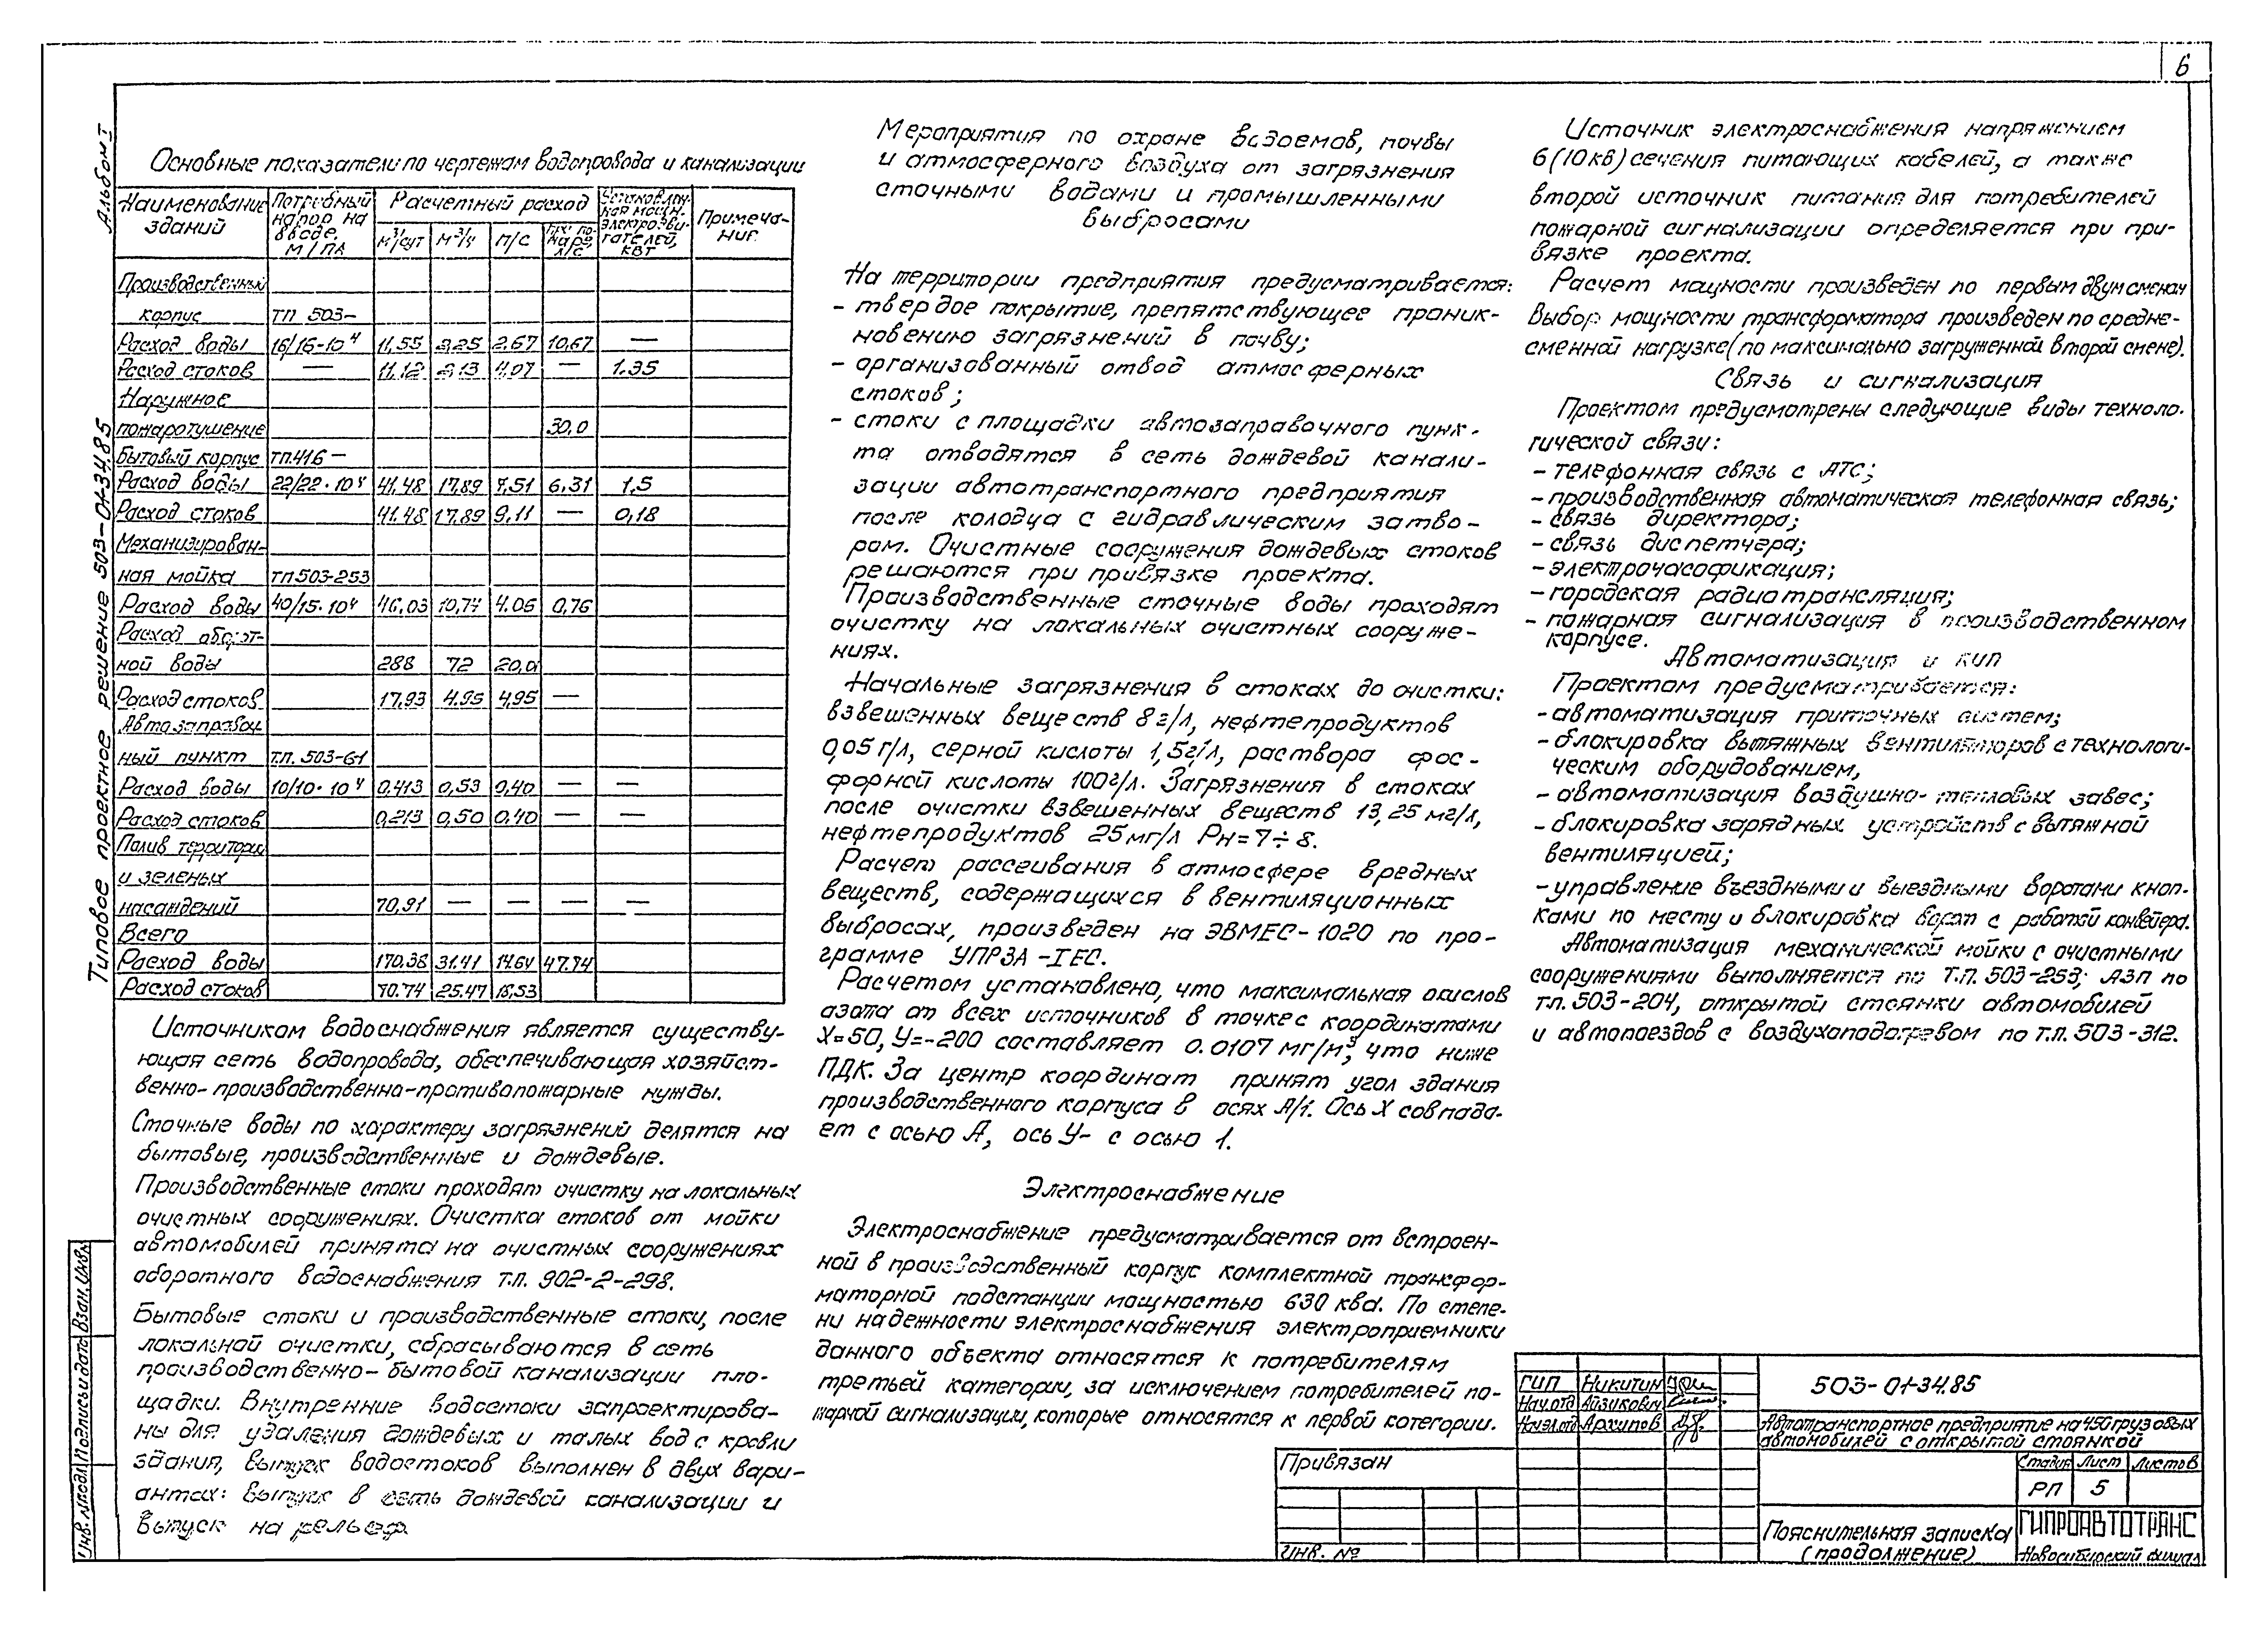 6
Альбом I
Типовое проектное решение 503-01-34.85
Основные показатели по чертежам водопровода и канализации
Наименование зданий | Потребный напор на вводе, м/па | Расчетный расход | Установлен-ная мощн. электродви-гателей, квт | Примеча-ние
м³/сут | м³/ч | л/с | при по-жаре, л/с
Производственный
корпус ТП 503-
Расход воды 16/16·10⁴ 11,55 3,25 2,67 10,67 —
Расход стоков — 11,12 3,13 4,07 — 1.35
Наружное
пожаротушение 30,0
Бытовый корпус тп.416—
Расход воды 22/22·10⁴ 41,48 17,89 7,51 6,31 1,5
Расход стоков 41.48 17,89 9,11 — 0,18
Механизирован-
ная мойка ТП 503-253
Расход воды 40/15·10⁴ 46,03 10,74 4.06 0,76
Расход оборот-
ной воды 288 72 20,0
Расход стоков 17,93 4.95 4,95 —
Автозаправоч-
ный пункт т.п. 503-61
Расход воды 10/10·10⁴ 0,413 0,53 0,40 — —
Расход стоков 0,213 0,50 0,40 — —
Полив территори
и зеленых
насаждений 70,91 — — — —
Всего
Расход воды 170,38 31.41 14.64 47.74
Расход стоков 70.74 25.47 18,53
Источником водоснабжения является существу-
ющая сеть водопровода, обеспечивающая хозяйст-
венно-производственно-противопожарные нужды.
Сточные воды по характеру загрязнений делятся на
бытовые, производственные и дождевые.
Производственные стоки проходят очистку на локальных
очистных сооружениях. Очистка стоков от мойки
автомобилей принята на очистных сооружениях
оборотного водоснабжения т.п. 902-2-298.
Бытовые стоки и производственные стоки, после
локальной очистки, сбрасываются в сеть
производственно-бытовой канализации пло-
щадки. Внутренние водостоки запроектирова-
ны для удаления дождевых и талых вод с кровли
здания, выпуск водостоков выполнен в двух вари-
антах: выпуск в сеть дождевой канализации и
выпуск на рельеф.
Мероприятия по охране водоемов, почвы
и атмосферного воздуха от загрязнения
сточными водами и промышленными
выбросами
На территории предприятия предусматривается:
- твердое покрытие, препятствующее проник-
новению загрязнений в почву;
- организованный отвод атмосферных
стоков;
- стоки с площадки автозаправочного пунк-
та отводятся в сеть дождевой канали-
зации автотранспортного предприятия
после колодца с гидравлическим затво-
ром. Очистные сооружения дождевых стоков
решаются при привязке проекта.
Производственные сточные воды проходят
очистку на локальных очистных сооруже-
ниях.
Начальные загрязнения в стоках до очистки:
взвешенных веществ 8 г/л, нефтепродуктов
0,05 г/л, серной кислоты 1,5г/л, раствора фос-
форной кислоты 100г/л. Загрязнения в стоках
после очистки взвешенных веществ 13,25 мг/л,
нефтепродуктов 25мг/л Рн=7÷8.
Расчет рассеивания в атмосфере вредных
веществ, содержащихся в вентиляционных
выбросах, произведен на ЭВМЕС-1020 по про-
грамме УПРЗА-IЕС.
Расчетом установлено, что максимальная окислов
азота от всех источников в точке с координатами
Х=50, У=-200 составляет 0.0107 мг/м³, что ниже
ПДК. За центр координат принят угол здания
производственного корпуса в осях А/1. Ось Х совпада-
ет с осью А, ось У- с осью 1.
Электроснабжение
Электроснабжение предусматривается от встроен-
ной в производственный корпус комплектной трансфор-
маторной подстанции мощностью 630 ква. По степе-
ни надежности электроснабжения электроприемники
данного объекта относятся к потребителям
третьей категории, за исключением потребителей по-
жарной сигнализации, которые относятся к первой категории.
Источник электроснабжения напряжением
6(10кв) сечения питающих кабелей, а также
второй источник питания для потребителей
пожарной сигнализации определяется при при-
вязке проекта.
Расчет мощности произведен по первым двум сменам
Выбор мощности трансформатора произведен по средне-
сменной нагрузке (по максимально загруженной второй смене).
Связь и сигнализация
Проектом предусмотрены следующие виды техноло-
гической связи:
- телефонная связь с АТС;
- производственная автоматическая телефонная связь;
- связь директора;
- связь диспетчера;
- электрочасофикация;
- городская радиотрансляция;
- пожарная сигнализация в производственном
корпусе.
Автоматизация и кип
Проектом предусматривается:
- автоматизация приточных систем;
- блокировка вытяжных вентиляторов с технологи-
ческим оборудованием,
- автоматизация воздушно-тепловых завес;
- блокировка зарядных устройств с вытяжной
вентиляцией;
- управление въездными и выездными воротами кноп-
ками по месту и блокировка ворот с работой конвейера.
Автоматизация механической мойки с очистными
сооружениями выполняется по т.п. 503-253; АЗП по
т.п. 503-204, открытой стоянки автомобилей
и автопоездов с воздухоподогревом по т.п. 503-312.
ГИП Никитин
Нач.отд Айзикович
Нач.эл.отд Архипов
503-01-34.85
Автотранспортное предприятие на 450 грузовых
автомобилей с открытой стоянкой
Стадия Лист Листов
РП 5
Пояснительная записка
(продолжение)
ГИПРОАВТОТРАНС
Новосибирский филиал
Привязан
Инв. №
Инв. № подл. Подпись и дата Взам. инв. №